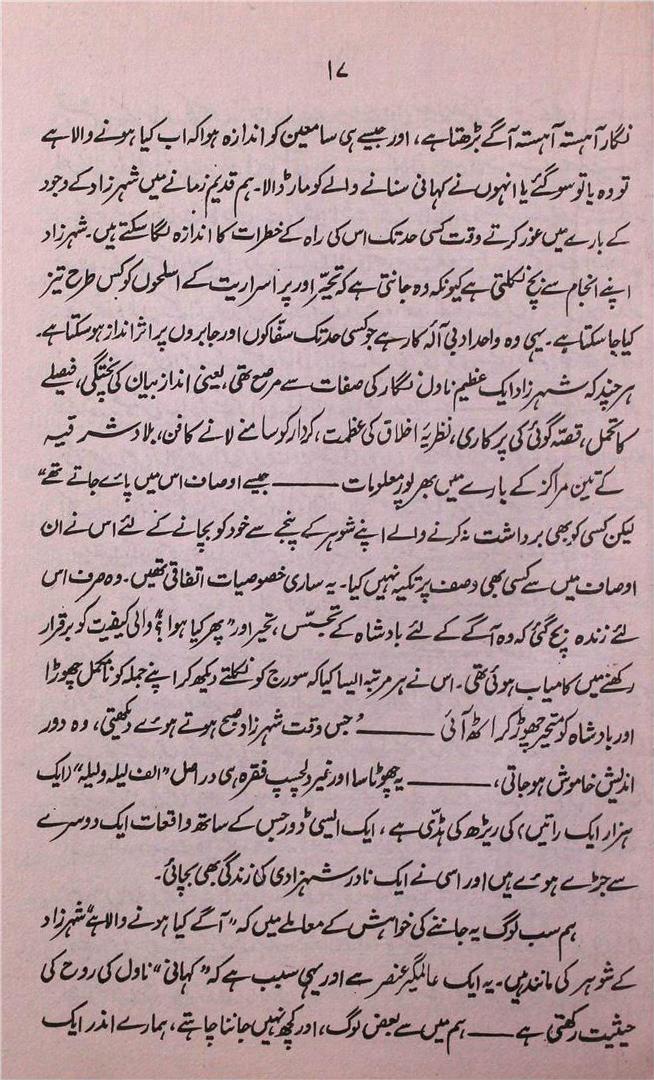 ۱۷
نگار آہستہ آہستہ آگے بڑھتا ہے، اور جیسے ہی سامعین کو اندازہ ہوا کہ اب کیا ہونے والا ہے
تو وہ یا تو سو گئے یا انہوں نے کہانی سنانے والے کو مار ڈالا۔ ہم قدیم زمانے میں شہرزاد کے وجود
کے بارے میں غور کرتے وقت کسی حد تک اس کی راہ کے خطرات کا اندازہ لگا سکتے ہیں۔ شہرزاد
اپنے انجام سے بچ نکلتی ہے کیونکہ وہ جانتی ہے کہ تحیّر اور پراسراریت کے اسلحوں کو کس طرح تیز
کیا جاسکتا ہے۔ یہی وہ واحد ادبی آلۂ کار ہے جو کسی حد تک سفّاکوں اور جابروں پر اثر انداز ہوسکتا ہے۔
ہر چند کہ شہرزاد ایک عظیم ناول نگار کی صفات سے مرصع تھی، یعنی انداز بیان کی پختگی، فیصلے
کا تحمل، قصّہ گوئی کی پرکاری، نظریۂ اخلاق کی عظمت، کردار کو سامنے لانے کا فن، بلاد شرقیہ
کے تین مراکز کے بارے میں بھرپور معلومات ——— جیسے اوصاف اس میں پائے جاتے تھے"
لیکن کسی کو بھی برداشت نہ کرنے والے اپنے شوہر کے پنجے سے خود کو بچانے کے لئے اس نے ان
اوصاف میں سے کسی بھی وصف پر تکیہ نہیں کیا۔ یہ ساری خصوصیات اتفاقی تھیں۔ وہ صرف اس
لئے زندہ بچ گئی کہ وہ آگے کے لئے بادشاہ کے تجسّس، تحیر اور "پھر کیا ہوا؟" والی کیفیت کو برقرار
رکھنے میں کامیاب ہوئی تھی۔ اس نے ہر مرتبہ ایسا کیا کہ سورج کو نکلتے دیکھ کر اپنے جملہ کو نامکمل چھوڑا
اور بادشاہ کو متحیر چھوڑ کر اٹھ آئی ——— "جس وقت شہرزاد صبح ہوتے ہوئے دیکھتی، وہ دور
اندیش خاموش ہو جاتی، ——— یہ چھوٹا سا اور غیر دلچسپ فقرہ ہی دراصل "الف لیلہ ولیلہ" (ایک
ہزار ایک راتیں) کی ریڑھ کی ہڈّی ہے، ایک ایسی ڈور جس کے ساتھ واقعات ایک دوسرے
سے جڑے ہوئے ہیں اور اسی نے ایک نادر شہزادی کی زندگی بھی بچائی۔
ہم سب لوگ یہ جاننے کی خواہش کے معاملے میں کہ "آگے کیا ہونے والا ہے" شہرزاد
کے شوہر کی مانند ہیں۔ یہ ایک عالمگیر عنصر ہے اور یہی سبب ہے کہ "کہانی" ناول کی روح کی
حیثیت رکھتی ہے —— ہم میں سے بعض لوگ، اور کچھ نہیں جاننا چاہتے، ہمارے اندر ایک